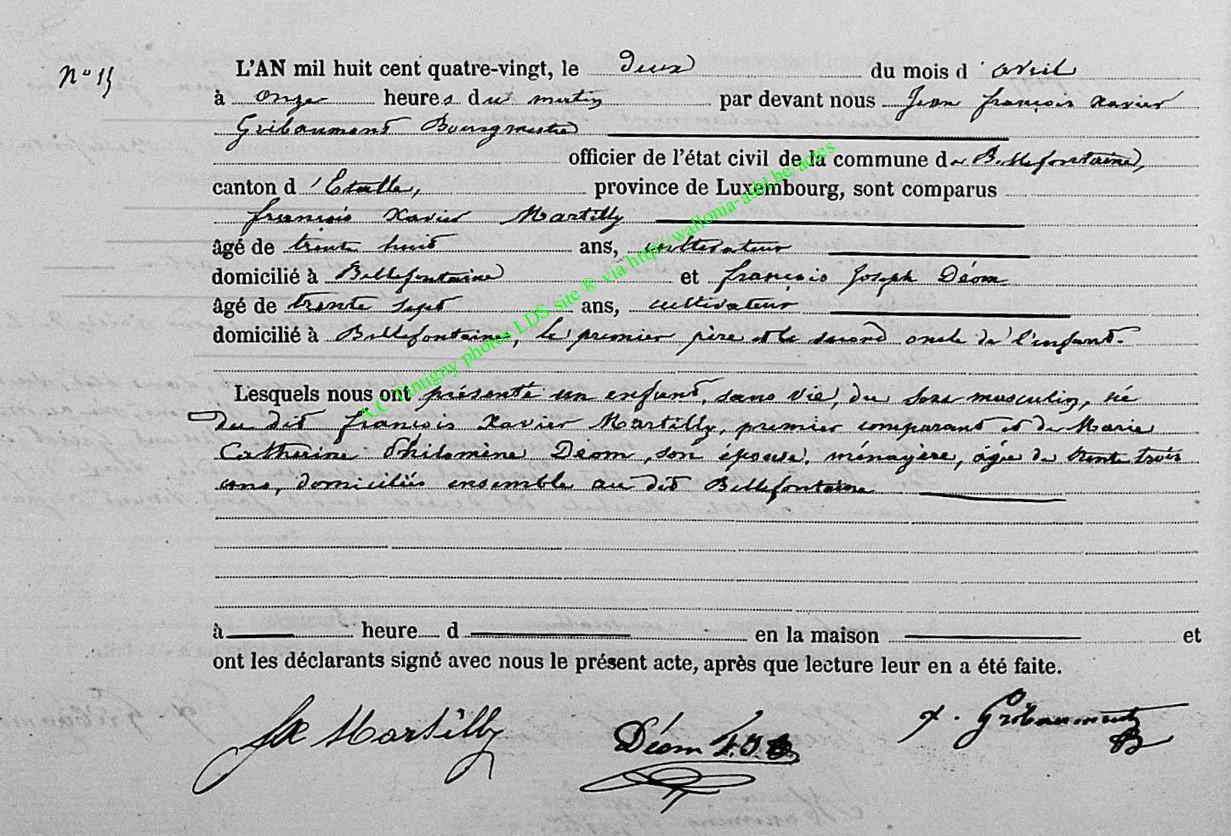 N° 15
L'AN mil huit cent quatre-vingt, le deux du mois d'avril
à onze heures du matin par devant nous Jean françois Xavier
Gribaumont Bourgmestre
officier de l'état civil de la commune de Bellefontaine,
canton d'Etalle, province de Luxembourg, sont comparus
françois Xavier Martilly
âgé de trente huit ans, cultivateur
domicilié à Bellefontaine et françois Joseph Déom
âgé de trente sept ans, cultivateur
domicilié à Bellefontaine, le premier père et le second oncle de l'enfant.
Lesquels nous ont présenté un enfant, sans vie, du sexe masculin, né
du dit françois Xavier Martilly, premier comparant et de Marie
Catherine Philomène Déom, son épouse, ménagère, âgée de trente trois
ans, domiciliés ensemble au dit Bellefontaine
à heure d en la maison et
ont les déclarants signé avec nous le présent acte, après que lecture leur en a été faite.
fx Martilly Déom F.J. x. Gribaumont
A.C. Tintigny photos LDS site ® via http://wallonia-asbl.be/actes